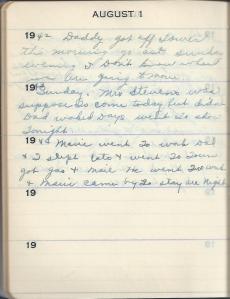 AUGUST 1
1942 Daddy got off Town
this morning go out Sunday
evening I Don't know what
we are going to move.
19 Sunday. Mrs Stevens was
suppose to come today but didn't
Dad waked Days went to show
Tonight
19 Marie went to work Dad
& I slept late & went To Town
got gas & mail He went To work
& Marie came by To stay all Night
19
19